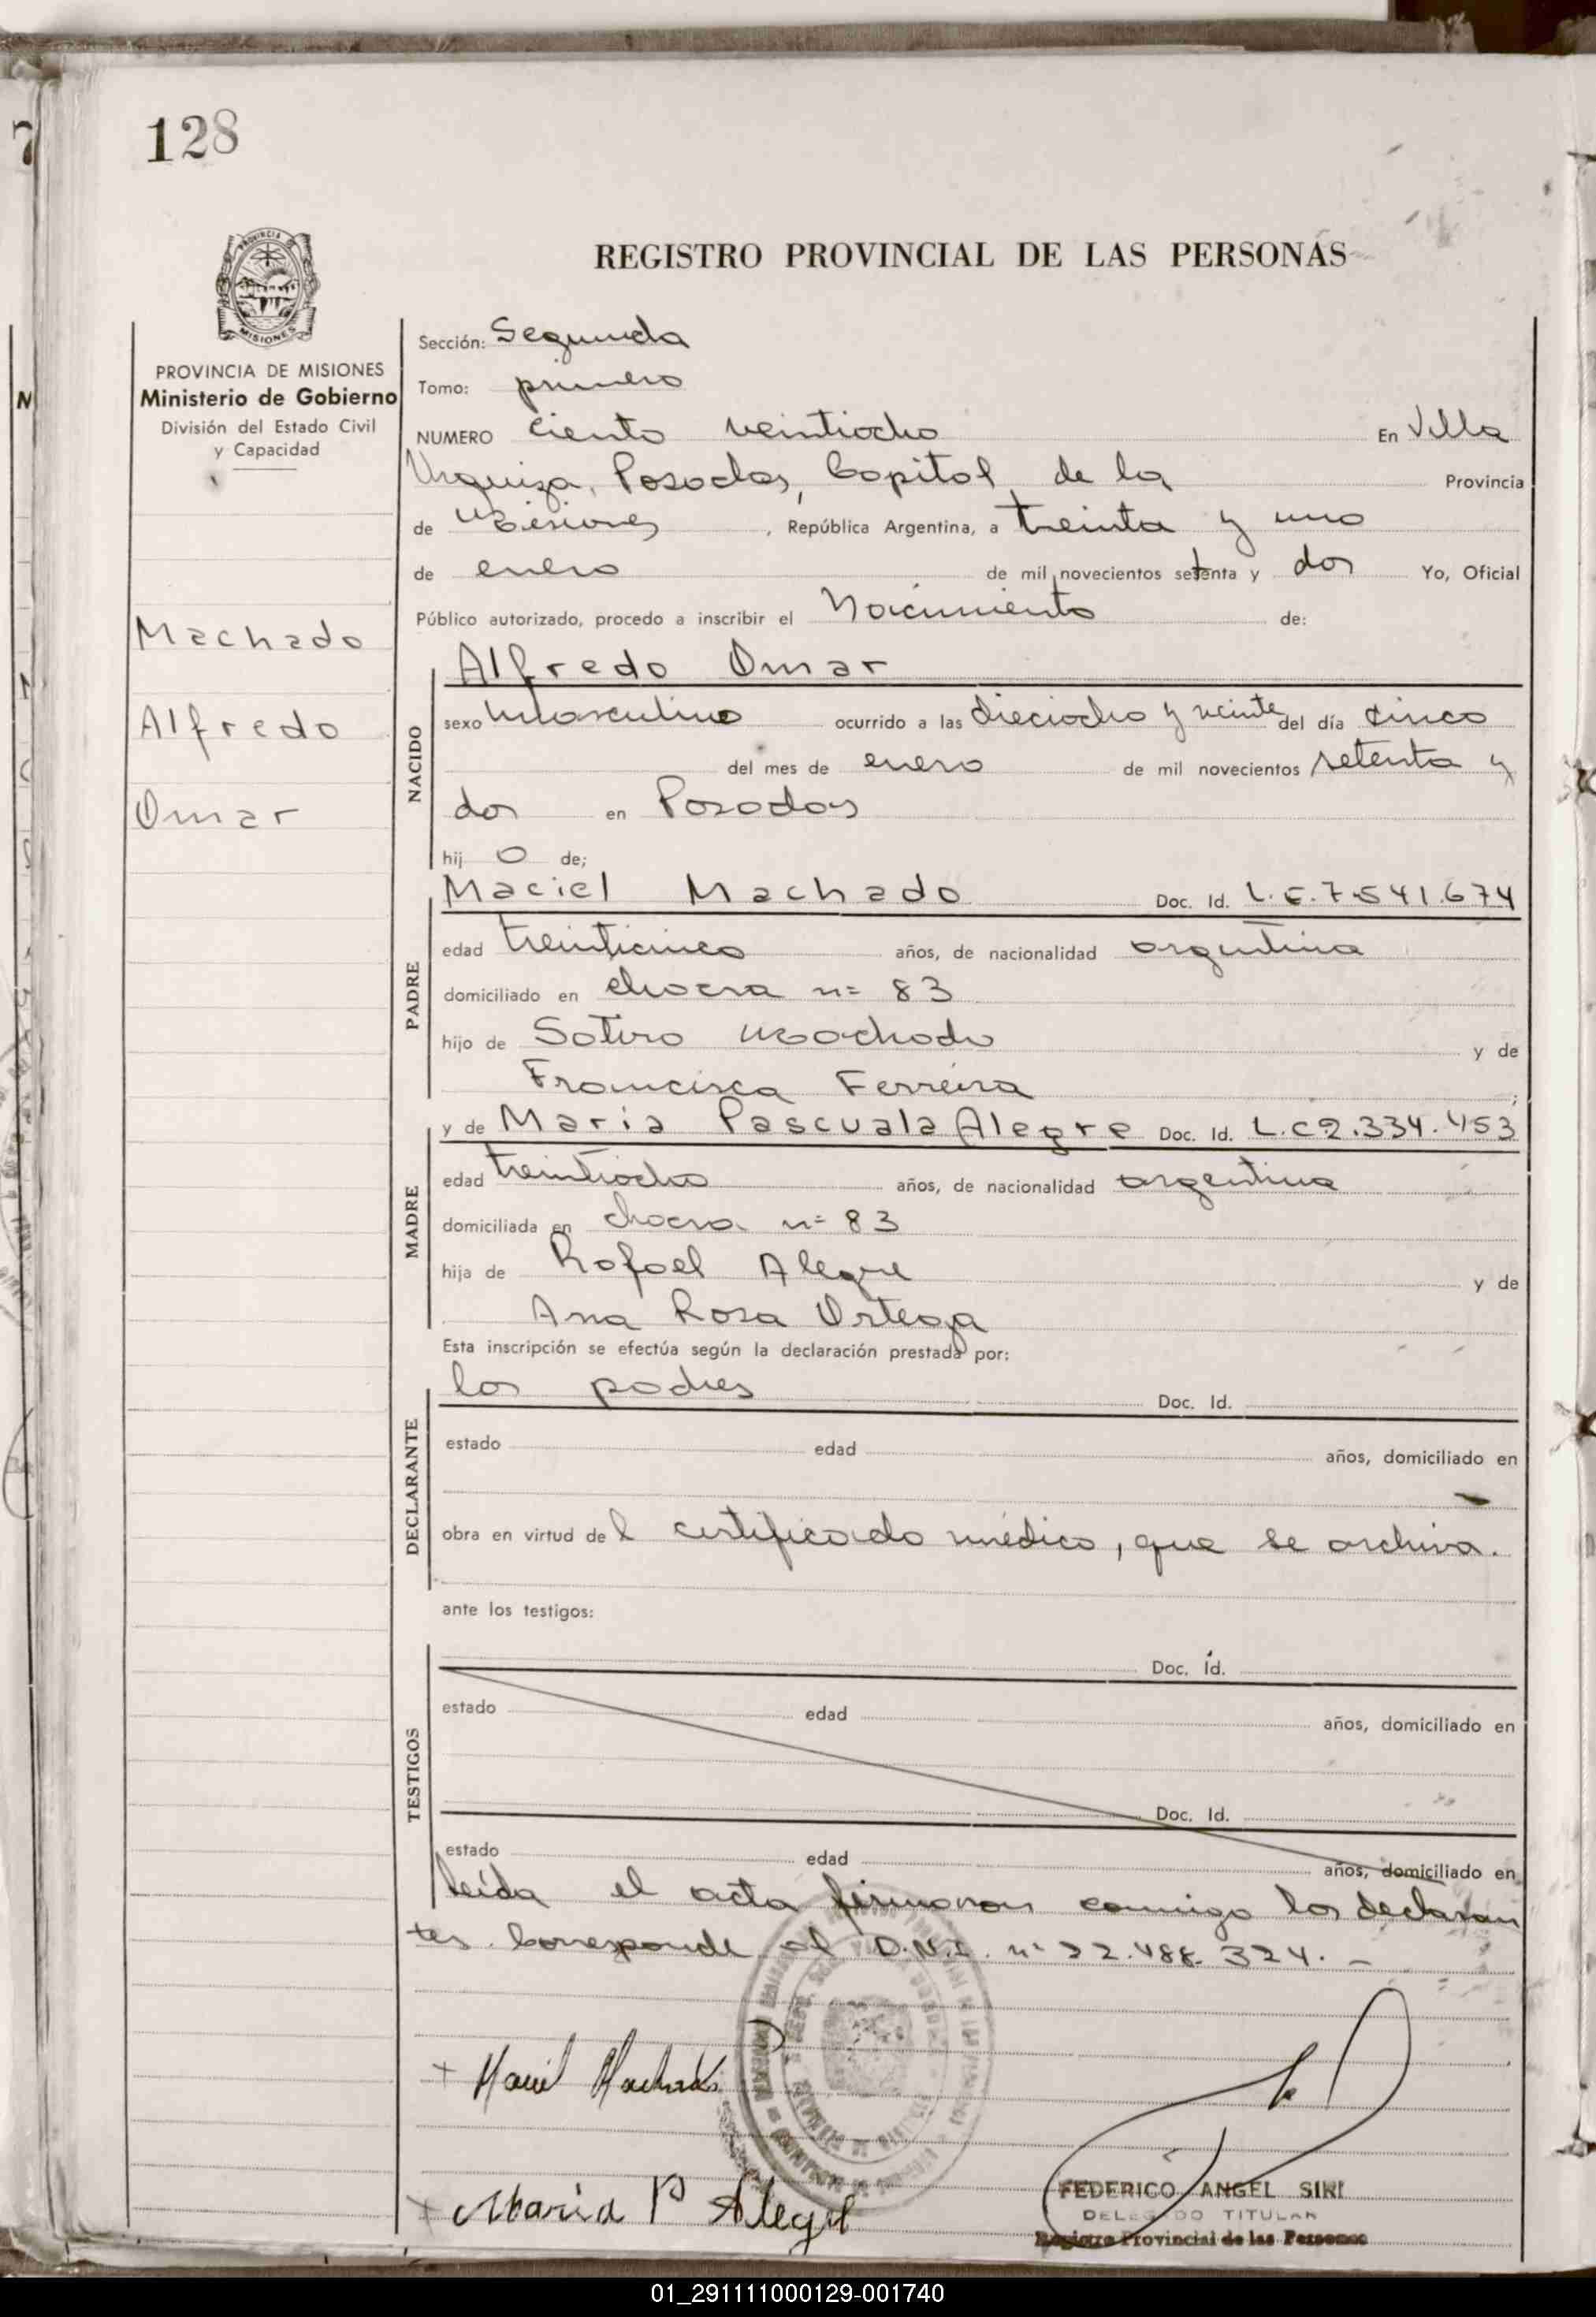 128
REGISTRO PROVINCIAL DE LAS PERSONAS
PROVINCIA DE MISIONES
Ministerio de Gobierno
División del Estado Civil
y Capacidad
Machado
Alfredo
Omar
Sección: Segunda
Tomo: primero
NUMERO ciento veintiocho En Villa
Urquiza, Posadas, Capital de la Provincia
de Misiones, República Argentina, a treinta y uno
de enero de mil novecientos setenta y dos Yo, Oficial
Público autorizado, procedo a inscribir el Nacimiento de:
NACIDO
Alfredo Omar
sexo masculino ocurrido a las dieciocho y veinte del día cinco
del mes de enero de mil novecientos setenta y
dos en Posadas
hij o de;
PADRE
Maciel Machado Doc. Id. L.E.7.541.674
edad treinticinco años, de nacionalidad argentina
domiciliado en chacra n= 83
hijo de Sotero Machado y de
Francisca Ferreira;
MADRE
y de Maria Pascuala Alegre Doc. Id. L.C 2.334.453
edad treintiocho años, de nacionalidad argentina
domiciliada en chacra n= 83
hija de Rafael Alegre y de
Ana Rosa Ortega
Esta inscripción se efectúa según la declaración prestada por:
DECLARANTE
los padres Doc. Id.
estado edad años, domiciliado en
obra en virtud de l certificado médico, que se archiva.
ante los testigos:
TESTIGOS
Doc. Id.
estado edad años, domiciliado en
Doc. Id.
estado edad años, domiciliado en
leída el acta firmaron conmigo los declaran
tes. Corresponde al D.N.I. n= 22.488.324. -
Maciel Machado
Maria P Alegre
FEDERICO ANGEL SIRI
DELEGADO TITULAR
Registro Provincial de las Personas
01_291111000129-001740